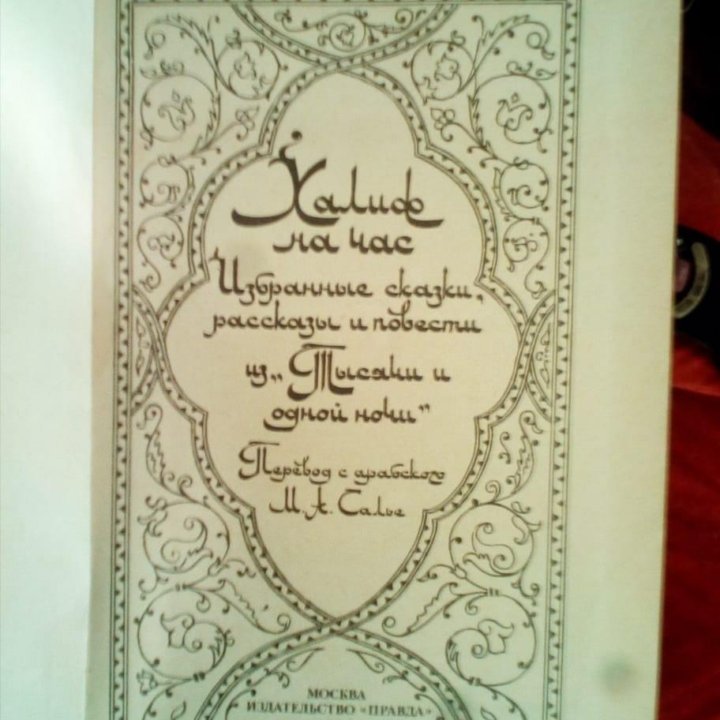 Халиф
на час
Избранные сказки,
рассказы и повести
из „Тысячи и
одной ночи“
Перевод с арабского
М. А. Салье
МОСКВА
ИЗДАТЕЛЬСТВО «ПРАВДА»